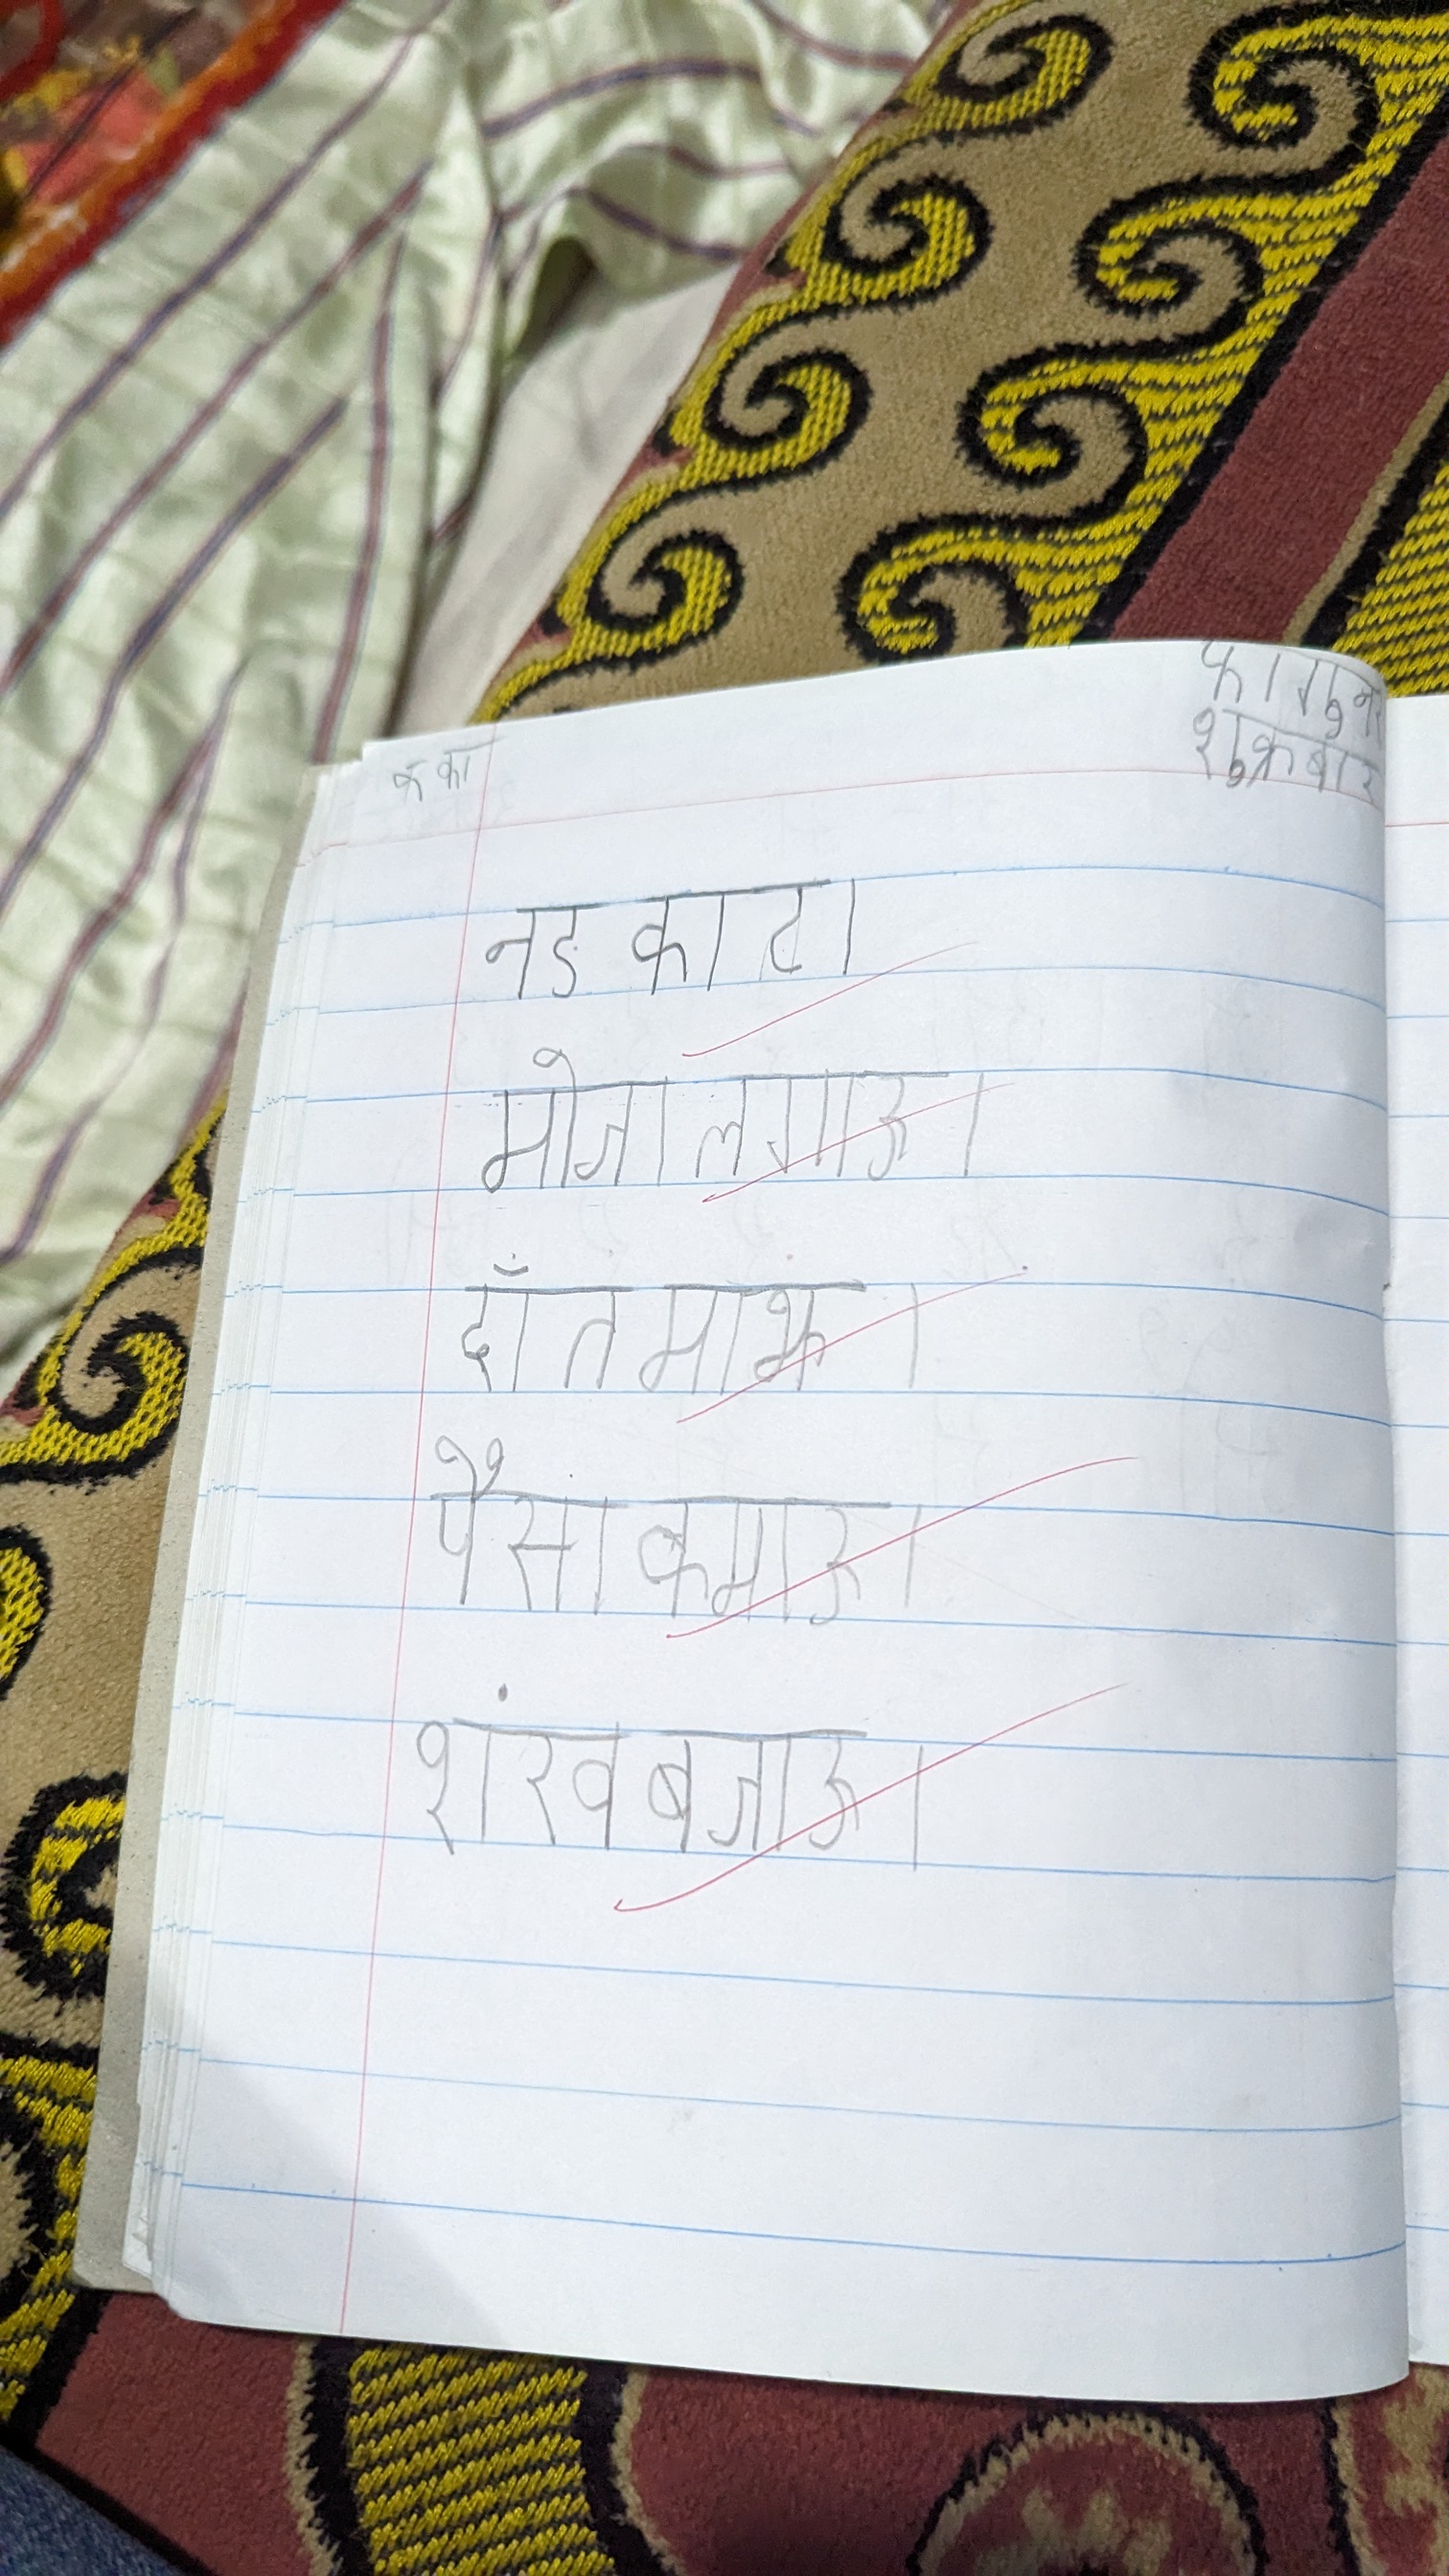 क का
फागुन
शुक्रबार
नङ काट।
मोजा लगाऊ।
दाँत माझ।
पैसा कमाऊ।
शंख बजाऊ।